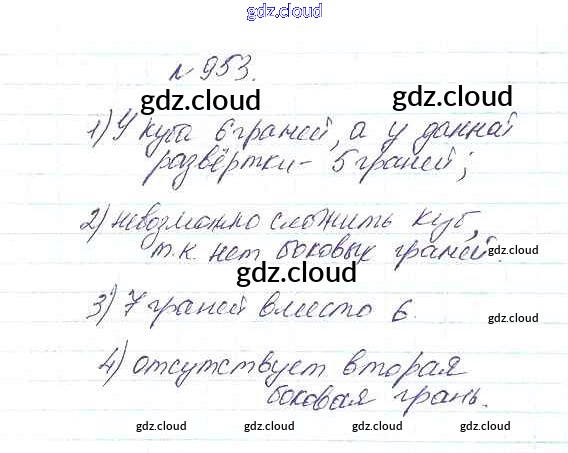 gdz.cloud
№ 953.
gdz.cloud
gdz.cloud
1) У куба 6 граней, а у данной
gdz.cloud
развёртки - 5 граней;
2) невозможно сложить куб,
т.к. нет боковых граней.
gdz.cloud
gdz.cloud
3) 7 граней вместо 6.
gdz.cloud
4) отсутствует вторая
боковая грань.
gdz.cloud
gdz.cloud
gdz.cloud